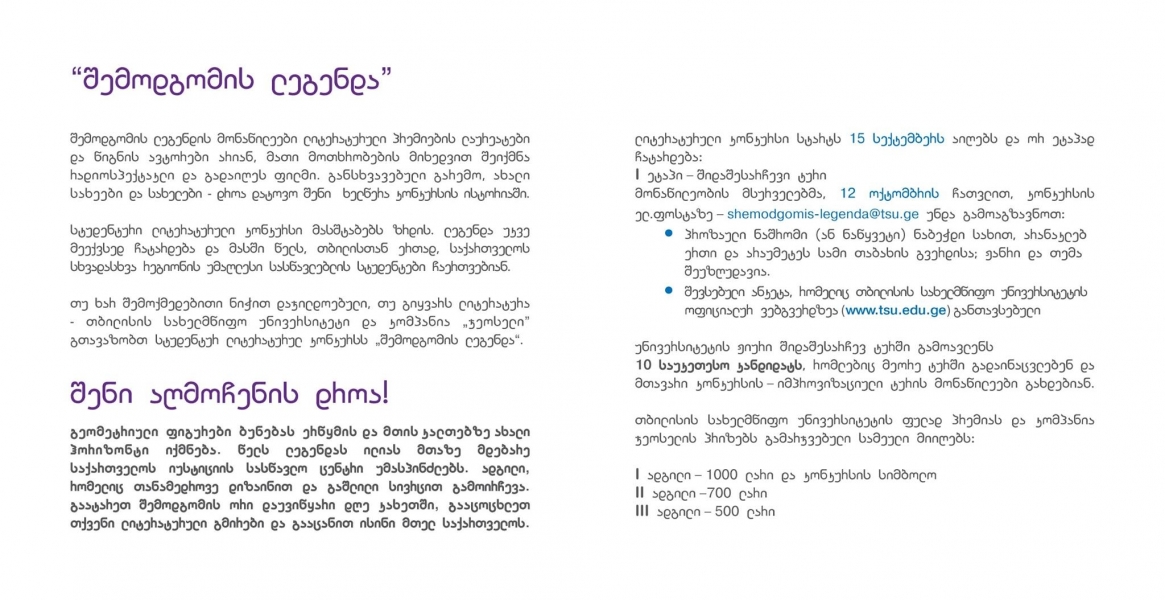 “შემოდგომის ლეგენდა”
შემოდგომის ლეგენდის მონაწილეები ლიტერატურული პრემიების ლაურეატები
და წიგნის ავტორები არიან, მათი მოთხრობების მიხედვით შეიქმნა
რადიოსპექტაკლი და გადაიღეს ფილმი. განსხვავებული გარემო, ახალი
სახეები და სახელები - დროა დატოვო შენი ხელწერა კონკურსის ისტორიაში.
სტუდენტური ლიტერატურული კონკურსი მასშტაბებს ზრდის. ლეგენდა უკვე
მეექვსედ ჩატარდება და მასში წელს, თბილისთან ერთად, საქართველოს
სხვადასხვა რეგიონის უმაღლესი სასწავლებლის სტუდენტები ჩაერთვებიან.
თუ ხარ შემოქმედებითი ნიჭით დაჯილდოებული, თუ გიყვარს ლიტერატურა
- თბილისის სახელმწიფო უნივერსიტეტი და კომპანია „ჯეოსელი”
გთავაზობთ სტუდენტურ ლიტერატურულ კონკურსს „შემოდგომის ლეგენდა“.
შენი აღმოჩენის დროა!
გეომეტრიული ფიგურები ბუნებას ერწყმის და მთის კალთებზე ახალი
ჰორიზონტი იქმნება. წელს ლეგენდას ილიას მთაზე მდებარე
საქართველოს იუსტიციის სასწავლო ცენტრი უმასპინძლებს. ადგილი,
რომელიც თანამედროვე დიზაინით და გაშლილი სივრცით გამოირჩევა.
გაატარეთ შემოდგომის ორი დაუვიწყარი დღე კახეთში, გააცოცხლეთ
თქვენი ლიტერატურული გმირები და გააცანით ისინი მთელ საქართველოს.
ლიტერატურული კონკურსი სტარტს 15 სექტემბერს აიღებს და ორ ეტაპად
ჩატარდება:
I ეტაპი – შიდაშესარჩევი ტური
მონაწილეობის მსურველებმა, 12 ოქტომბრის ჩათვლით, კონკურსის
ელ.ფოსტაზე – shemodgomis-legenda@tsu.ge უნდა გამოაგზავნოთ:
• პროზაული ნაშრომი (ან ნაწყვეტი) ნაბეჭდი სახით, არანაკლებ
ერთი და არაუმეტეს სამი თაბახის გვერდისა; ჟანრი და თემა
შეუზღუდავია.
• შევსებული ანკეტა, რომელიც თბილისის სახელმწიფო უნივერსიტეტის
ოფიციალურ ვებგვერდზეა (www.tsu.edu.ge) განთავსებული
უნივერსიტეტის ჟიური შიდაშესარჩევ ტურში გამოავლენს
10 საუკეთესო კანდიდატს, რომლებიც მეორე ტურში გადაინაცვლებენ და
მთავარი კონკურსის – იმპროვიზაციული ტურის მონაწილეები გახდებიან.
თბილისის სახელმწიფო უნივერსიტეტის ფულად პრემიას და კომპანია
ჯეოსელის პრიზებს გამარჯვებული სამეული მიიღებს:
I ადგილი – 1000 ლარი და კონკურსის სიმბოლო
II ადგილი –700 ლარი
III ადგილი – 500 ლარი